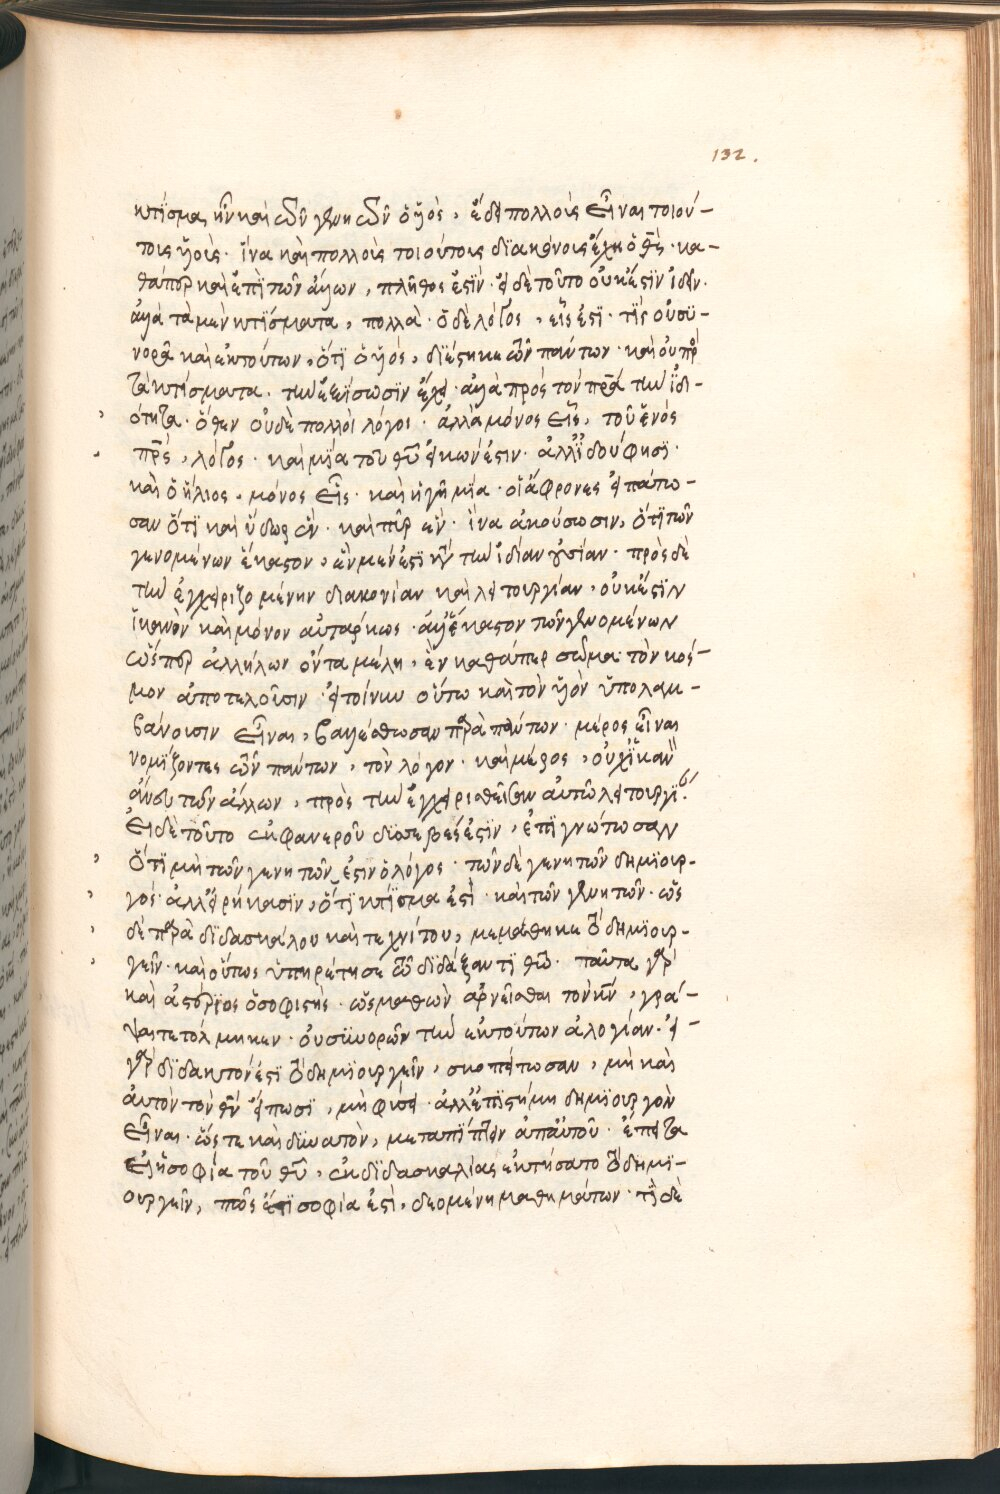 132.
κτίσμα ἦν καὶ ἓν γενητῶν ὁ υἱὸς, ἔδει πολλοὺς εἶναι τοιού-
τους υἱοὺς. ἵνα καὶ πολλοὺς τοιούτους διακόνους ἔχῃ ὁ θς. κα-
θάπερ καὶ ἐπὶ τῶν ἄλλων, πλῆθος ἐστίν. εἰ δὲ τοῦτο οὐκ ἔστιν ἰδεῖν.
ἀλλὰ τὰ μὲν κτίσματα, πολλὰ. ὁ δὲ λόγος, εἷς ἐστι. τίς οὐ συ-
νορᾶ καὶ ἐκ τούτων, ὅτι ὁ υἱὸς, διέστηκε τῶν πάντων. καὶ οὐ πρὸς
τὰ κτίσματα. τὴν ἐξίσωσιν ἔχει. ἀλλὰ πρὸς τὸν πρα τὴν ἰδι-
ότητα. ὅθεν οὐδὲ πολλοὶ λόγοι. ἀλλὰ μόνος εἷς, τοῦ ἑνὸς
πρς, λόγος. καὶ μία τοῦ θυ εἰκών ἐστιν. ἀλλ' ἰδού φησι.
καὶ ὁ ἥλιος, μόνος εἷς. καὶ ἡ γῆ μία. οἱ ἄφρονες εἰπάτω-
σαν ὅτι καὶ ὕδωρ ἓν. καὶ πῦρ ἓν. ἵνα ἀκούσωσιν, ὅτι τῶν
γενομένων ἕκαστον, ἓν μέν ἐστι κατὰ τὴν ἰδίαν οὐσίαν. πρὸς δὲ
τὴν ἐγχειριζομένην διακονίαν καὶ λειτουργίαν, οὐκ ἔστιν
ἱκανὸν καὶ μόνον αὐτάρκως. ἀλλ' ἕκαστον τῶν γενομένων
ὥσπερ ἀλλήλων ὄντα μέλη, ἓν καθάπερ σῶμα τὸν κόσ-
μον ἀποτελοῦσιν. εἰ τοίνυν οὕτω καὶ τὸν υἱὸν ὑπολαμ-
βάνουσιν εἶναι, βαλλέσθωσαν παρὰ πάντων. μέρος εἶναι
νομίζοντες τῶν πάντων, τὸν λόγον. καὶ μέρος, οὐχ ἱκανὸν
ἄνευ τῶν ἄλλων, πρὸς τὴν ἐγχειρισθεῖσαν αὐτῶ λειτουργί.
Εἰ δὲ τοῦτο ἐκ φανεροῦ δυσσεβές ἐστιν, ἐπιγνώτωσαν
ὅτι μὴ τῶν γενητῶν ἐστιν ὁ λόγος. τῶν δὲ γενητῶν δημιουρ-
γός. ἀλλ' εἰρήκασιν, ὅτι κτίσμα ἐστὶ. καὶ τῶν γενητῶν. ὡς
δὲ παρὰ διδασκάλου καὶ τεχνίτου, μεμάθηκε τὸ δημιουρ-
γεῖν. καὶ οὕτως ὑπηρέτησε τῶ διδάξαντι θω. ταῦτα γὰρ
καὶ ἀστέριος ὁ σοφιστὴς. ὡς μαθὼν ἀρνεῖσθαι τὸν κν, γρά-
ψαι τετόλμηκεν. οὐ συνορῶν τὴν ἐκ τούτων ἀλογίαν. εἰ
γὰρ διδακτόν ἐστι τὸ δημιουργεῖν, σκοπείτωσαν, μὴ καὶ
αὐτὸν τὸν θν εἴπωσι, μὴ φύσει. ἀλλ' ἐπιστήμη δημιουργὸν
εἶναι. ὥστε καὶ δυνατὸν, μεταπίπτειν ἀπ' αὐτοῦ. ἔπειτα
εἰ ἡ σοφία τοῦ θυ, ἐκ διδασκαλίας ἐκτήσατο τὸ δημι-
ουργεῖν, πῶς ἔτι σοφία ἐστὶ, δεομένη μαθημάτων. τί δὲ